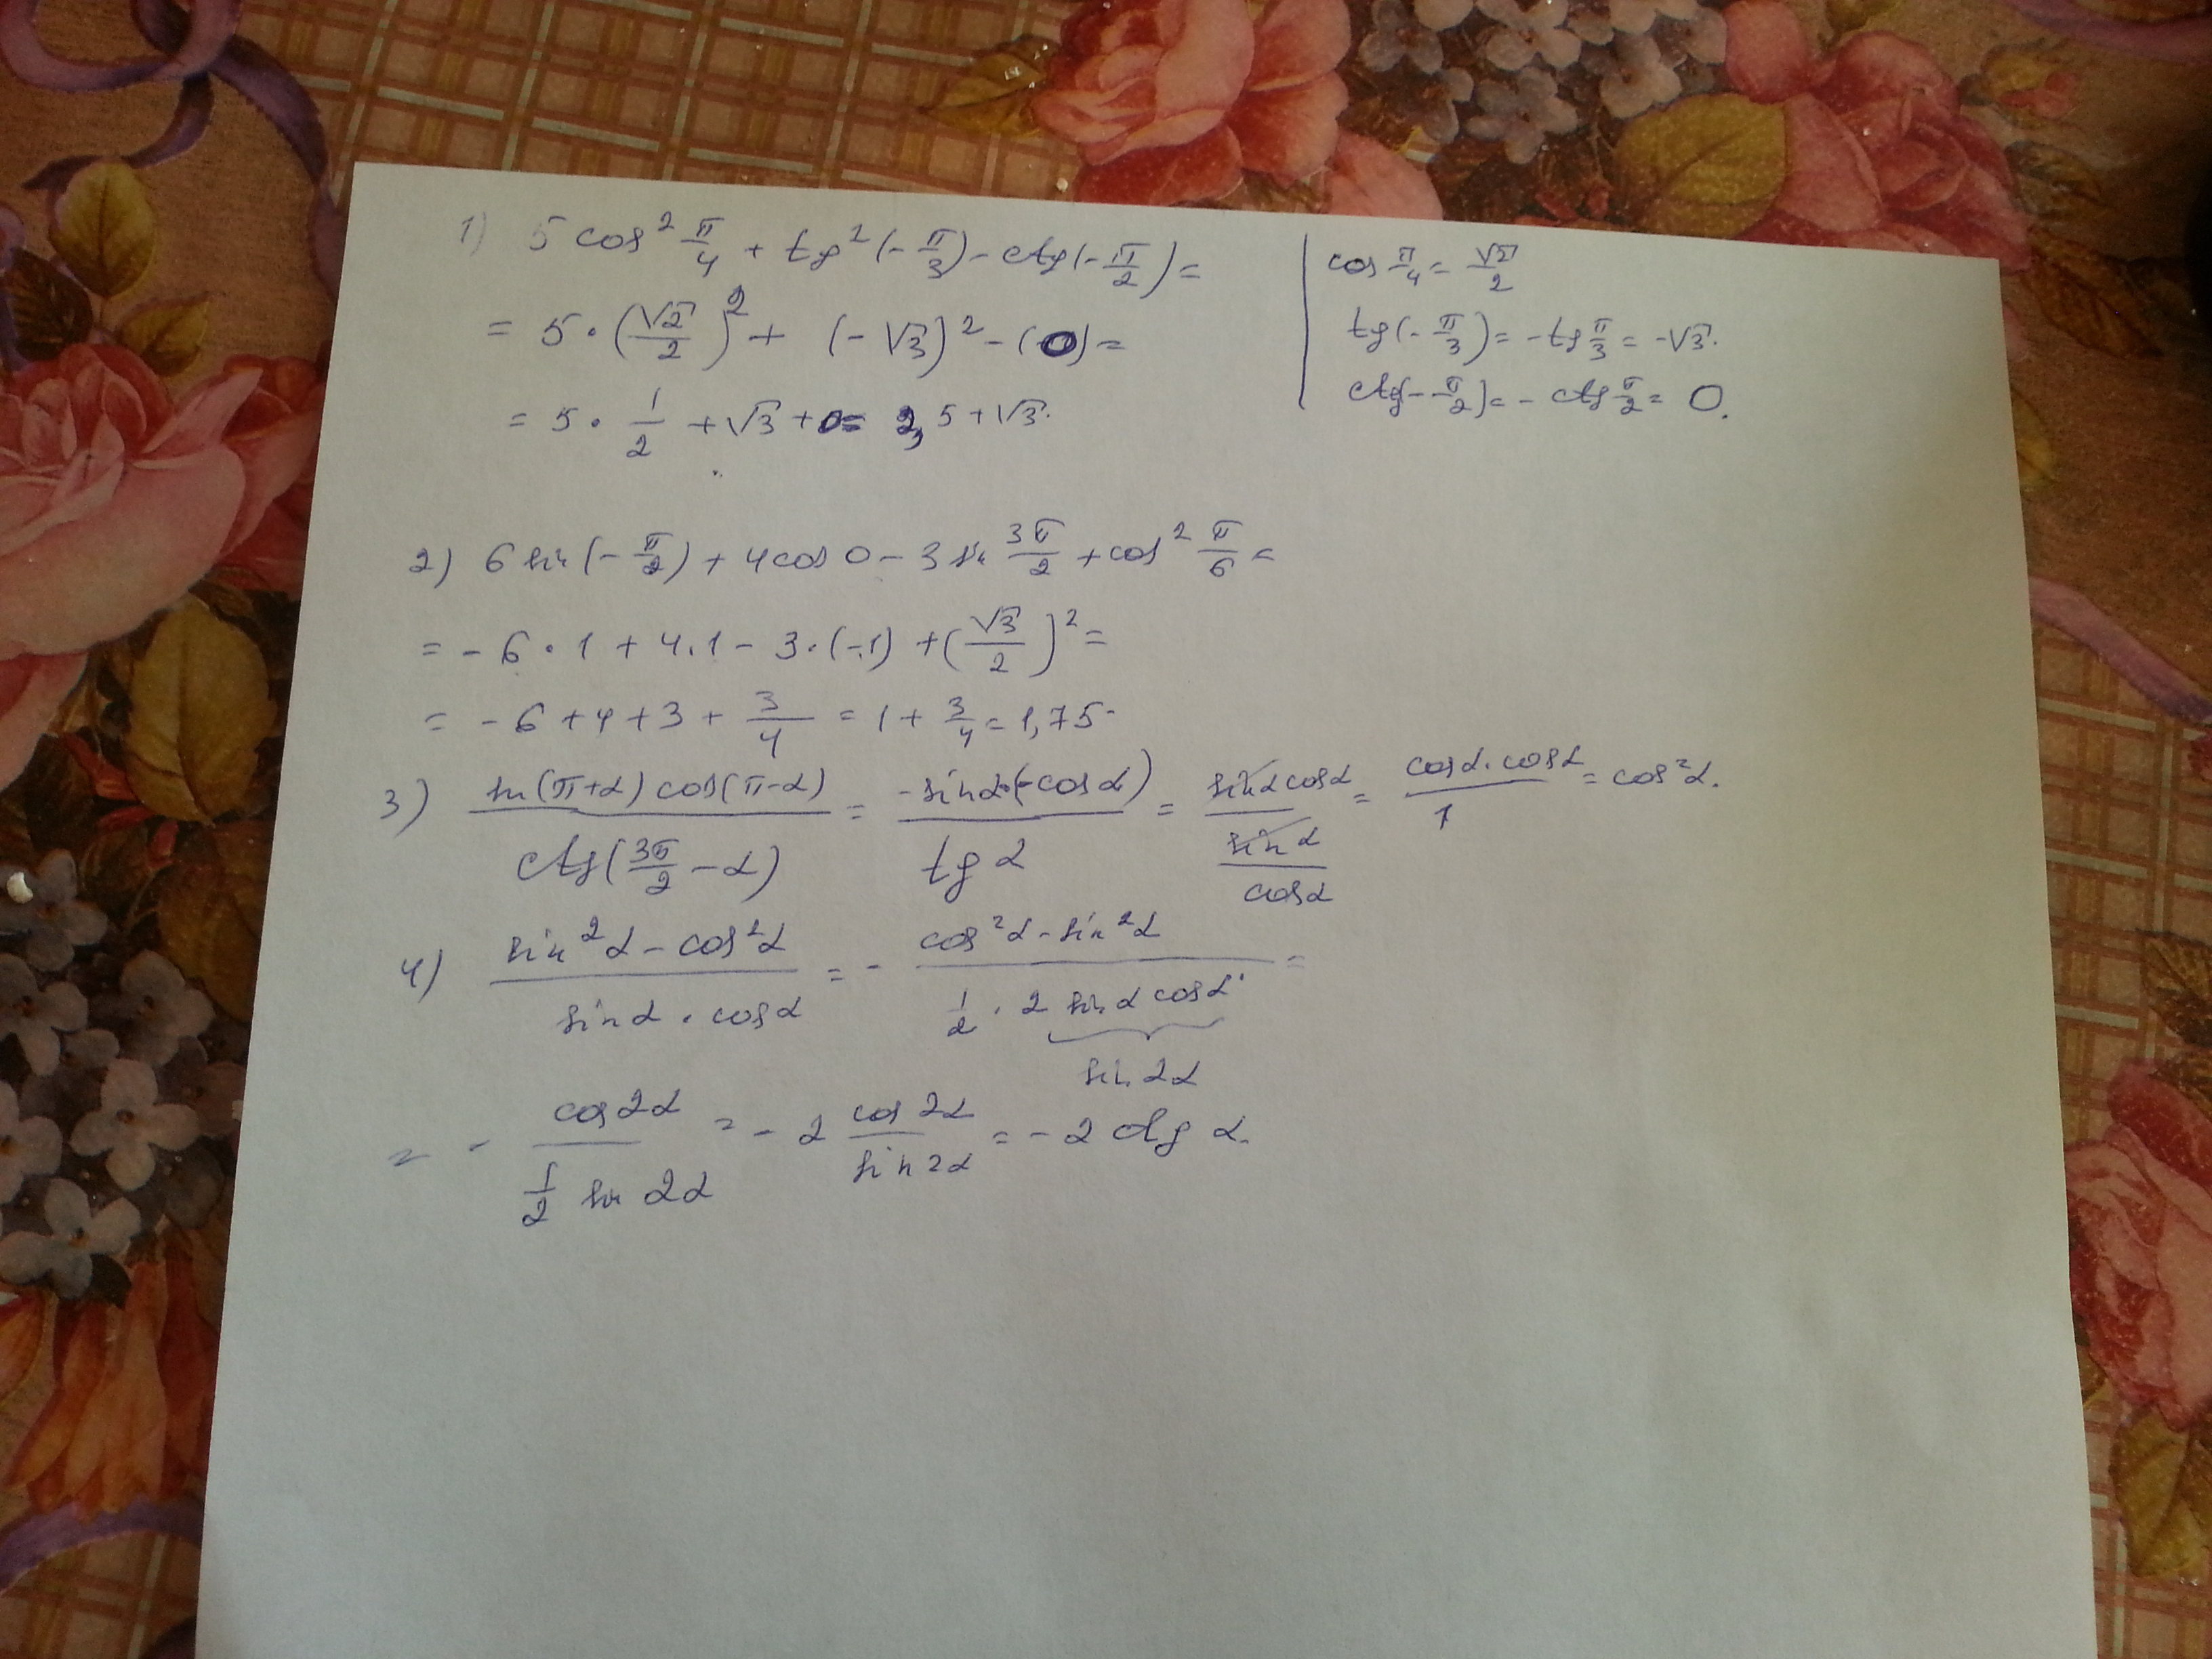 1) 5 cos² π/4 + tg² (-π/3) - ctg(-π/2) =
= 5 · (√2/2)² + (-√3)² - (0) =
= 5 · 1/2 + √3 + 0 = 2,5 + √3.
cos π/4 = √2/2
tg(-π/3) = -tg π/3 = -√3.
ctg(-π/2) = - ctg π/2 = 0.
2) 6 sin(-π/2) + 4 cos 0 - 3 sin 3π/2 + cos² π/6 =
= - 6 · 1 + 4 · 1 - 3 · (-1) + (√3/2)² =
= - 6 + 4 + 3 + 3/4 = 1 + 3/4 = 1,75
3) sin(π+α) cos(π-α) / ctg(3π/2 - α) = -sinα·(-cosα) / tgα = sinα cosα / (sinα/cosα) = cosα · cosα / 1 = cos²α.
4) (sin²α - cos²α) / (sinα · cosα) = - (cos²α - sin²α) / (1/2 · 2 sinα cosα) =
sin 2α
= - cos2α / (1/2 sin 2α) = - 2 cos 2α / sin 2α = - 2 ctg α.